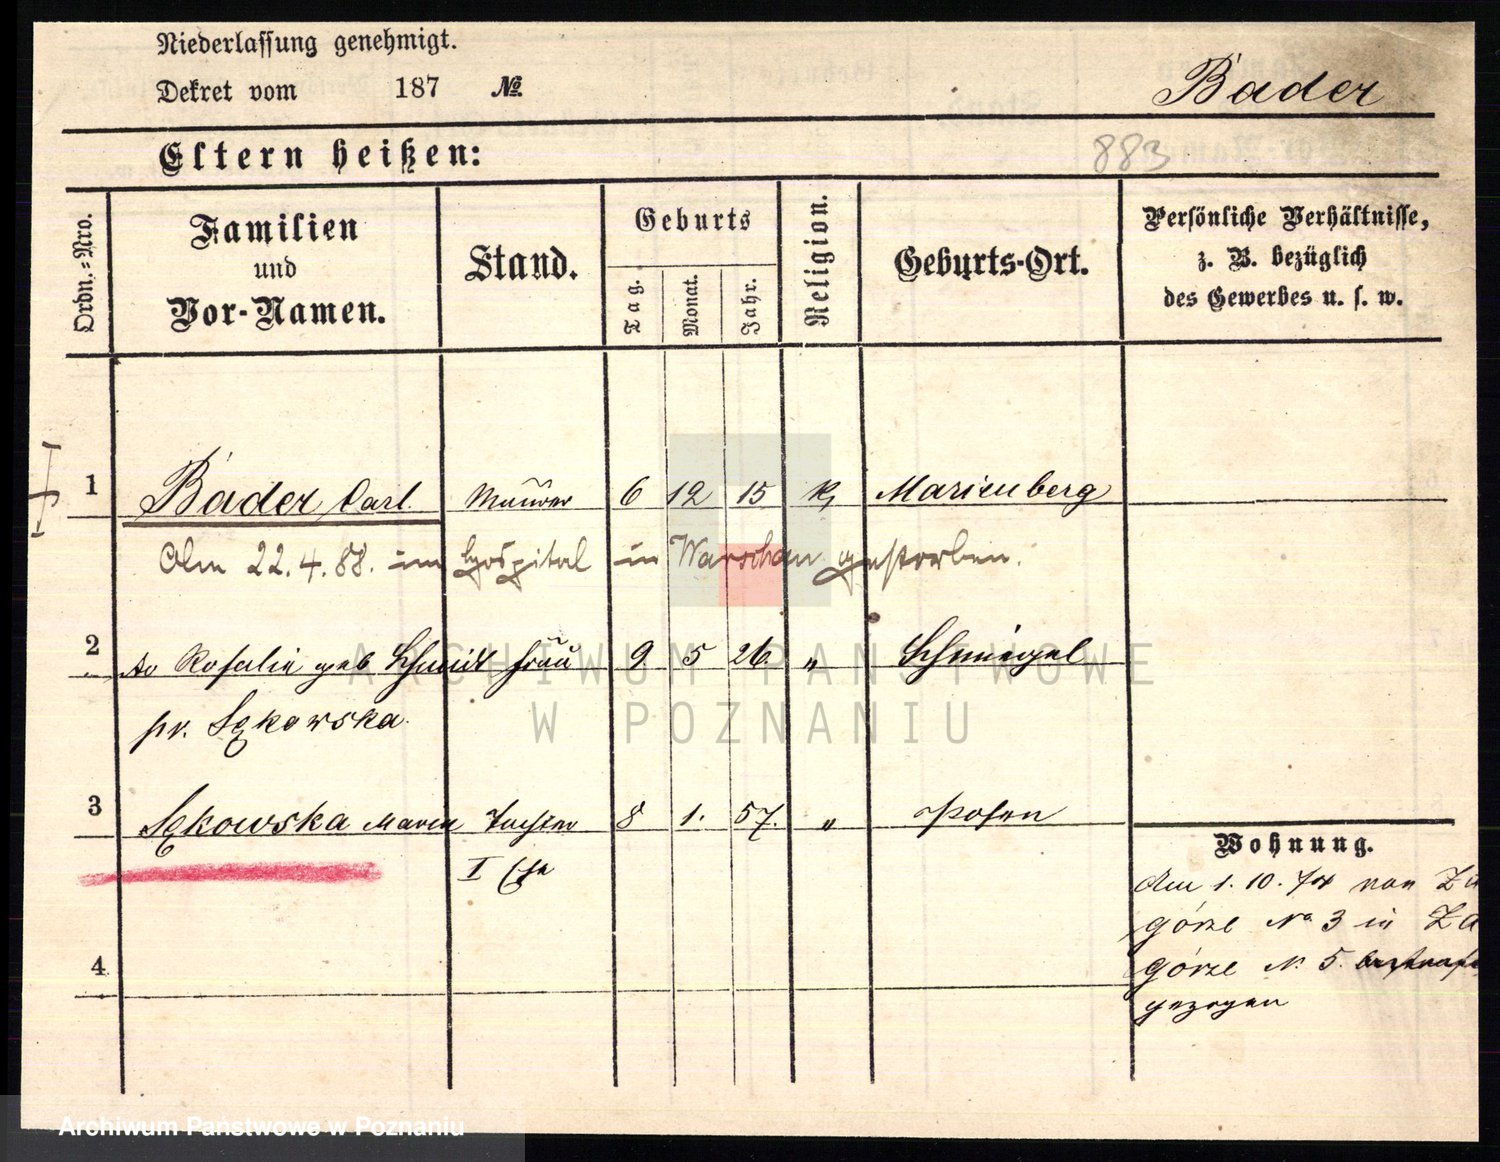 Niederlassung genehmigt.
Dekret vom 187 №
Bader
Eltern heißen:
883
Ordn.=Nro.
Familien
und
Vor-Namen.
Stand.
Geburts
Tag.
Monat.
Jahr.
Religion.
Geburts-Ort.
Persönliche Verhältnisse,
z. B. bezüglich
des Gewerbes u. s. w.
1 Bader Carl. Maurer 6 12 15 k, Marienberg
Am 22.4.88. im Hospital in Warschau gestorben.
2 Rosalie geb Schmidt Frau 9 5 26. " Schmiegel
pr. Sękowska.
3 Sękowska Maria Tochter 8 1. 57. " Posen
I Ehe
Wohnung.
Am 1. 10. 74 von Za
górze No 3 in Za
górze N. 5.
gezogen
4
ARCHIWUM PAŃSTWOWE
W POZNANIU
Archiwum Państwowe w Poznaniu